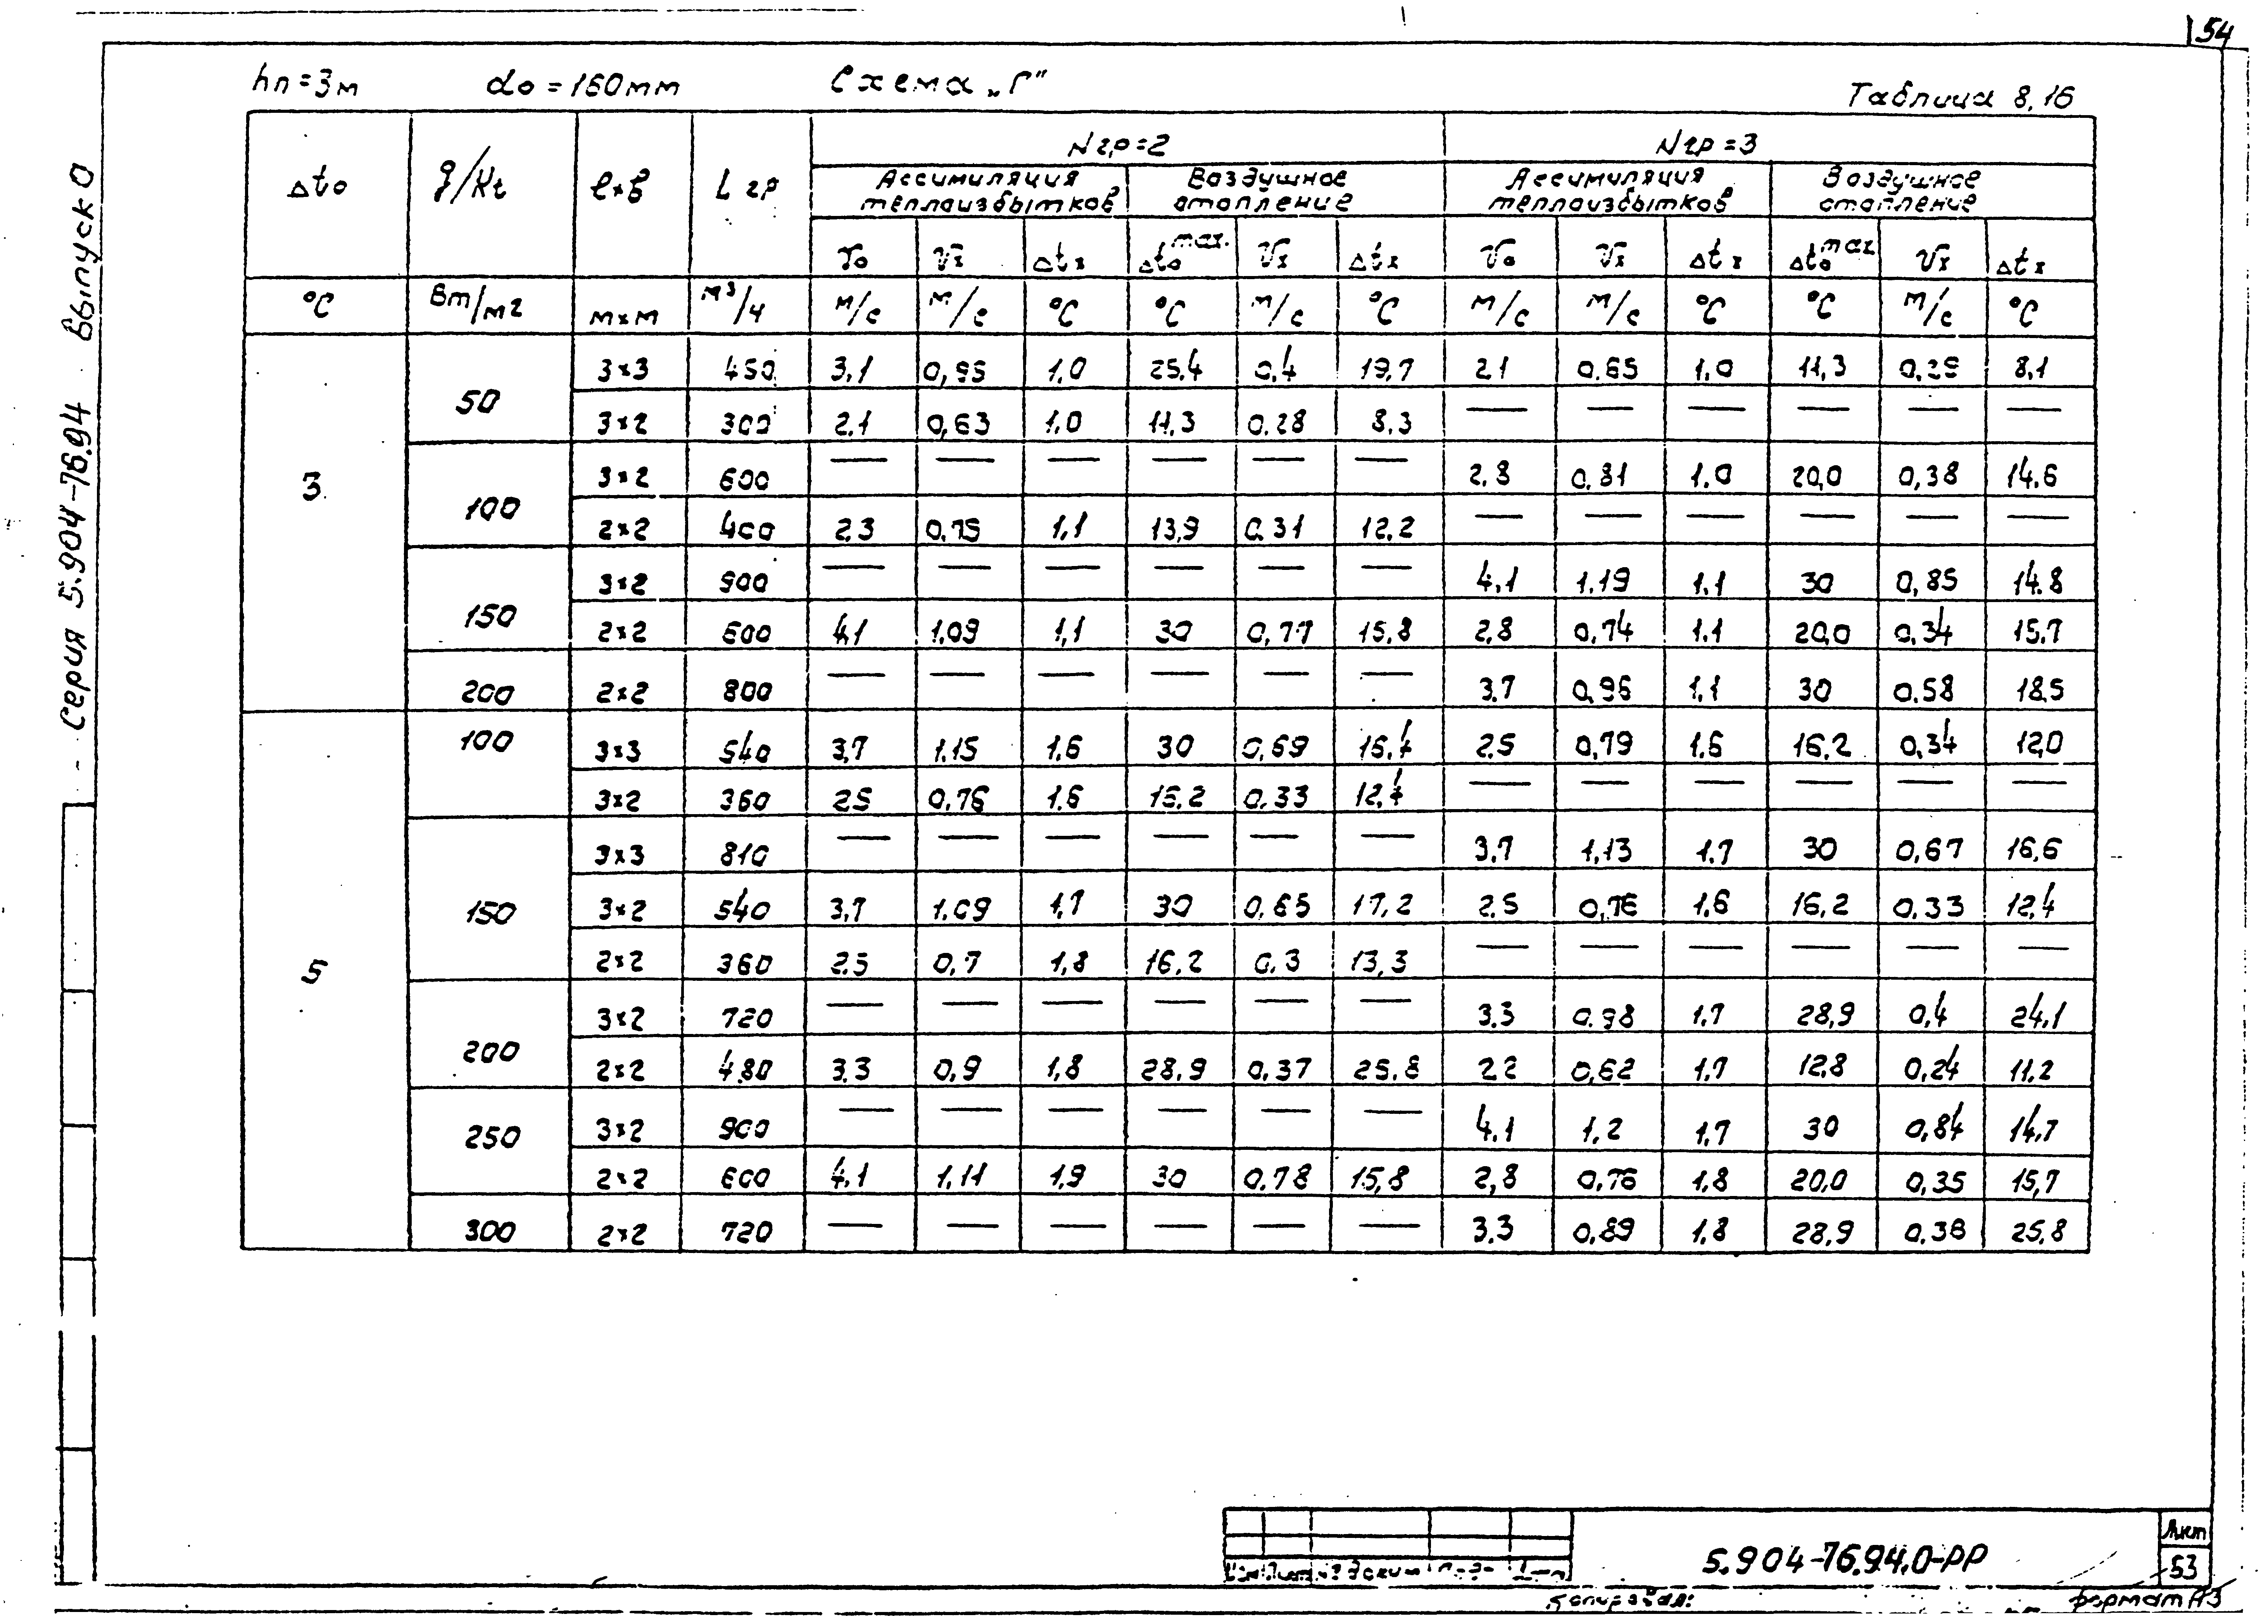 54
hп=3м do=160мм Схема „Г"
Таблица 8.16
Δto q/Kt l×b L гр Nгр=2 Nгр=3
Ассимиляция теплоизбытков Воздушное отопление Ассимиляция теплоизбытков Воздушное отопление
Vo Vx Δtx Δto max. Vx Δtx Vo Vx Δtx Δto max Vx Δtx
°C Вт/м2 м×м м³/ч м/с м/с °C °C м/с °C м/с м/с °C °C м/с °C
3 50 3×3 450 3,1 0,95 1,0 25,4 0,4 19,7 2.1 0.65 1,0 11,3 0,29 8,1
3×2 300 2.1 0,63 1,0 11,3 0.28 8.3 — — — — — —
100 3×2 600 — — — — — — 2.8 0.81 1.0 20,0 0,38 14.6
2×2 400 2.3 0,75 1,1 13,9 0.31 12.2 — — — — — —
150 3×2 900 — — — — — — 4.1 1.19 1.1 30 0,85 14.8
2×2 600 4,1 1,09 1,1 30 0,77 15,8 2,8 0,74 1.1 20,0 0,34 15.7
200 2×2 800 — — — — — — 3.7 0,96 1,1 30 0.58 18,5
5 100 3×3 540 3,7 1,15 1,6 30 0,69 16,4 2.5 0,79 1.6 16,2 0,34 12,0
3×2 360 2.5 0,76 1.6 16.2 0.33 12,4 — — — — — —
150 3×3 810 — — — — — — 3.7 1,13 1.7 30 0,67 16,6
3×2 540 3,7 1.09 1,7 30 0,65 17,2 2.5 0,76 1,6 16,2 0.33 12,4
2×2 360 2.5 0,7 1,8 16,2 0.3 13,3 — — — — — —
200 3×2 720 — — — — — — 3.3 0.98 1.7 28,9 0,4 24,1
2×2 480 3.3 0,9 1,8 28,9 0,37 25.8 2.2 0,62 1.7 12,8 0,24 11.2
250 3×2 900 — — — — — — 4.1 1,2 1,7 30 0,84 14,7
2×2 600 4,1 1,11 1,9 30 0,78 15,8 2,8 0,76 1,8 20,0 0,35 15,7
300 2×2 720 — — — — — — 3.3 0,89 1,8 28,9 0,36 25,8
Серия 5.904-76.94 Выпуск 0
5.904-76.94.0-РР
Лист
53
Копировал:
формат А3